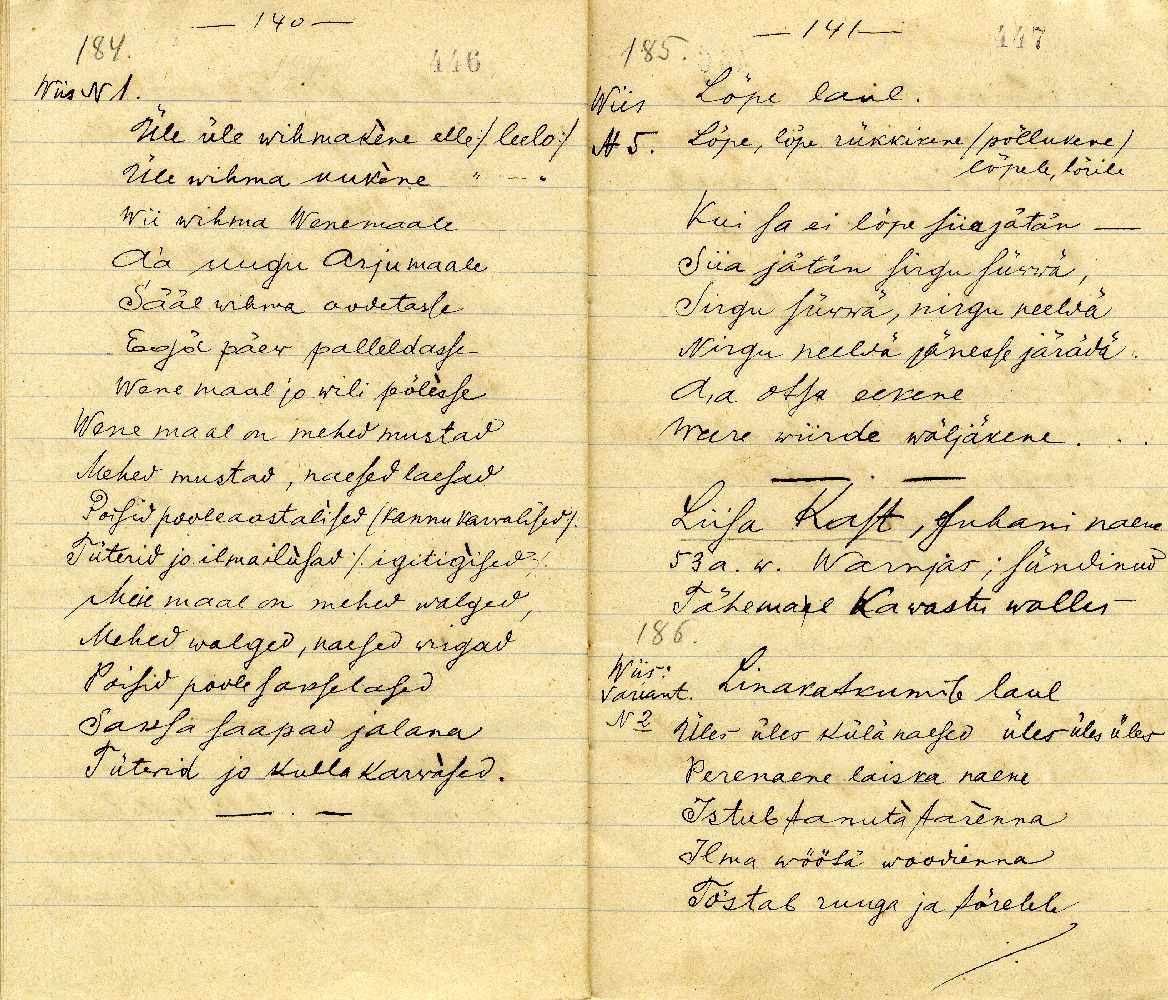 — 140 —
184.
446
Wiis N 1.
Üle üle wihmakène elle /: leelo :/
Üle wihma uukène " — "
Wii wihma Wenemaale
Aa uugu Arjumaale
Sääl wihma oodetasse
päew palleldasse
Wene maal jo wili põlèsse
Wene maal on mehed mustad
Mehed mustad, naesed laesad
Poisid pooleaostalised /kannu karwalised/.
Tüterid jo ilmailùsad /: igitigìsed :/
Meie maal on mehed walged,
Mehed walged, naesed wirgad
Poisid poole sakselased
Saksa saapad jalana
Tüterid jo kulla karwàsed.
— 141 —
447
185.
Wiis N 5.
Lõpe laul.
Lõpe, lõpe rükkikene /põllukene/
lõpele, lõrile
Kui sa ei lõpe siia jätän —
Siia jätän sirgu süwwä,
Sirgu süwwä, nirgu neeldä
Nirgu neeldä jänesse järädä.
Aja otsa eekene
Weere wiirde wäljäkene . . .
Liisa Kast, Juhani naene
53 a. w. Warnjas; sündinud
Tähemaal Kawastu wallas
186.
Wiis:
Variant.
N 2
Linakatkumise laul
Üles üles külä naesed üles üles üles
Perenaene laiska naene
Istub tanutà tarènna
Ilma wöötä woodienna
Tõstab ruuga ja tõreleb